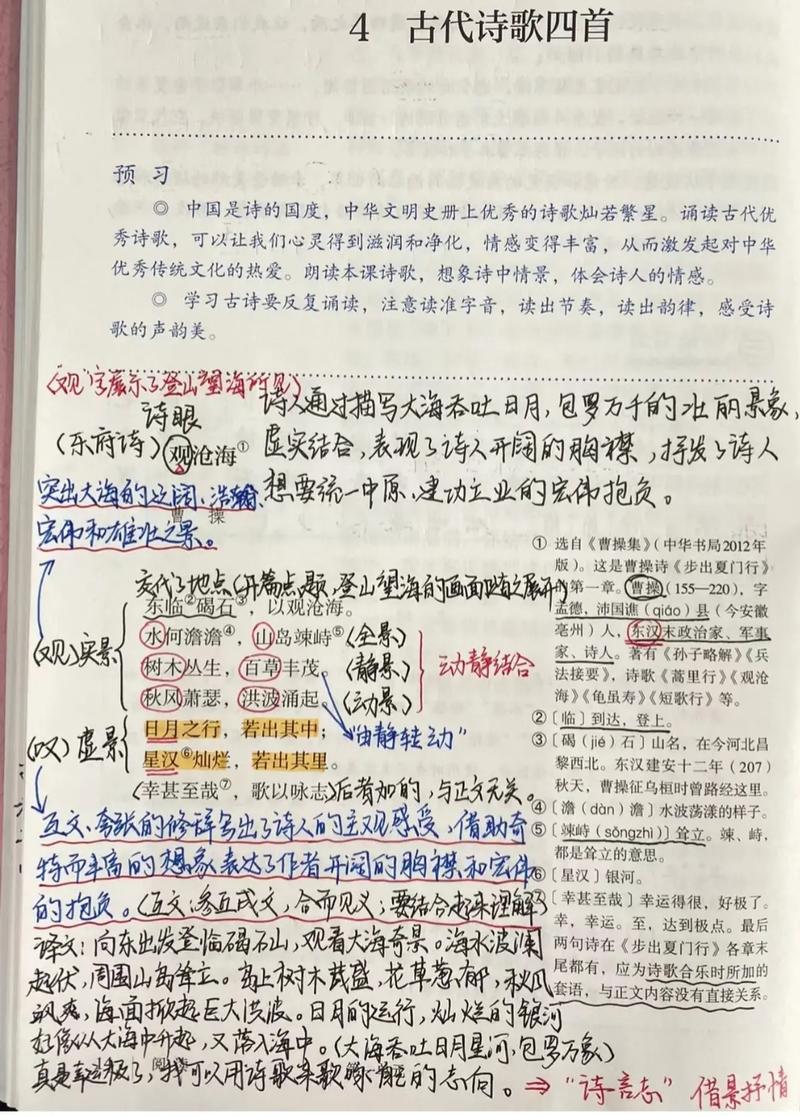 4 古代诗歌四首
预习
◎ 中国是诗的国度，中华文明史册上优秀的诗歌灿若繁星。诵读古代优
秀诗歌，可以让我们心灵得到滋润和净化，情感变得丰富，从而激发起对中华
优秀传统文化的热爱。朗读本课诗歌，想象诗中情景，体会诗人的情感。
◎ 学习古诗要反复诵读，注意读准字音，读出节奏，读出韵律，感受诗
歌的声韵美。
(观"字展示了登山望海所见)
诗眼
(乐府诗) 观沧海①
曹操
诗人通过描写大海吞吐日月，包罗万千的壮丽景象，
虚实结合，表现了诗人开阔的胸襟，抒发了诗人
想要统一中原、建功立业的宏伟抱负。
突出大海的辽阔、浩瀚、
宏伟和雄壮之景。
交代了地点(开篇点题，登山望海的画面
东临②碣石③，以观沧海。
(观)实景
水何澹澹④，山岛竦峙⑤ (全景)
树木丛生，百草丰茂。(静景)
秋风萧瑟，洪波涌起。(动景)
动静结合
(叹)虚景
日月之行，若出其中；
"由静转动"
星汉⑥灿烂，若出其里。
(幸甚至哉⑦，歌以咏志)后者加的，与正文无关。
互文、夸张的修辞写出了诗人的主观感受，借助奇
特而丰富的想象表达了作者开阔的胸襟和宏伟
的抱负。(互文:参互成文，合而见义;要结合起来理解)
译文:向东出发登临碣石山，观看大海奇景。海水波澜
起伏，周围山岛耸立。岛上树木茂盛，花草葱郁，秋风
飒爽，海面掀起巨大洪波。日月的运行，灿烂的银河
好像从大海中升起，又落入海中。(大海吞吐日月星河，包罗万象)
真是幸运极了，我可以用诗歌来歌 的志向。⇒"诗言志" 借景抒情
① 选自《曹操集》（中华书局2012年
版）。这是曹操诗《步出夏门行》
的第一章。曹操（155—220），字
孟德，沛国谯（qiáo）县（今安徽
亳州）人，东汉末政治家、军事
家、诗人。著有《孙子略解》《兵
法接要》，诗歌《蒿里行》《观沧
海》《龟虽寿》《短歌行》等。
②〔临〕到达，登上。
③〔碣（jié）石〕山名，在今河北昌
黎西北。东汉建安十二年（207）
秋天，曹操征乌桓时曾路经这里。
④〔澹（dàn）澹〕水波荡漾的样子。
⑤〔竦峙（sǒngzhì）〕耸立。竦、峙，
都是耸立的意思。
⑥〔星汉〕银河。
⑦〔幸甚至哉〕幸运得很，好极了。
幸，幸运。至，达到极点。最后
两句诗在《步出夏门行》各章末
尾都有，应为诗歌合乐时所加的
套语，与正文内容没有直接关系。